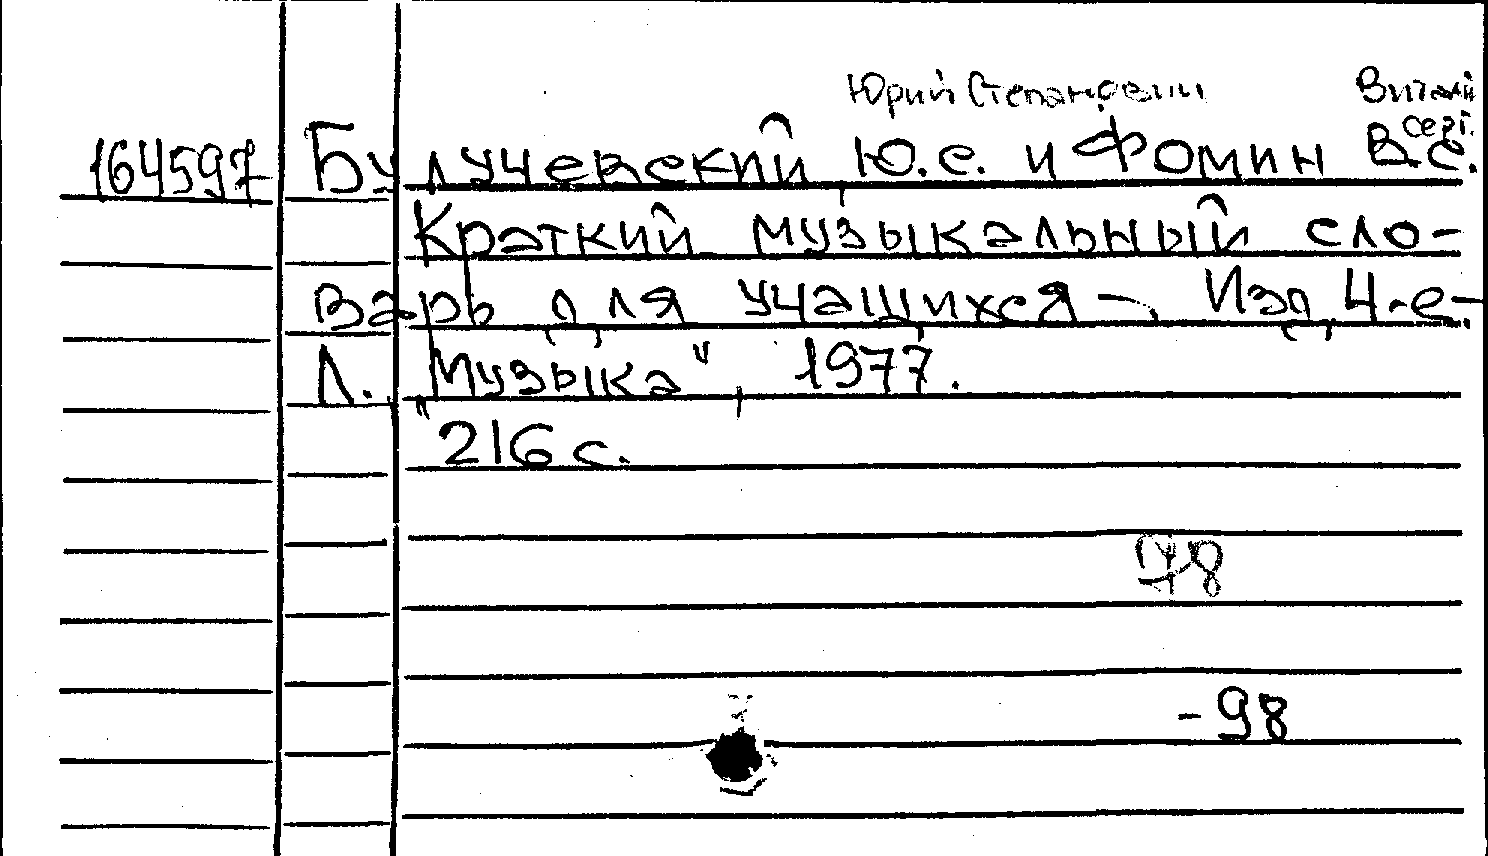 Юрий Степанович Виталий
серг.
164597 Булучевский Ю.С. и Фомин В.С.
Краткий музыкальный сло-
варь для учащихся -. Изд, 4-е-.
Л. „Музыка", 1977.
216 с.
78
-98